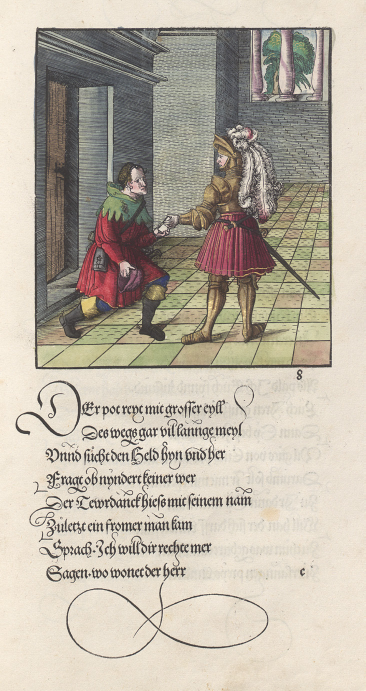 8
DEr pot reyt mit grosser eyll
Des wegs gar vil lannge meyl
Vnnd sucht den Held hyn vnd her
Fragt ob nyndert keiner wer
Der Tewrdanck hieß mit seinem nam
Zuletzt ein fromer man kam
Sprach · Ich will dir rechte mer
Sagen · wo wonet der herr
c